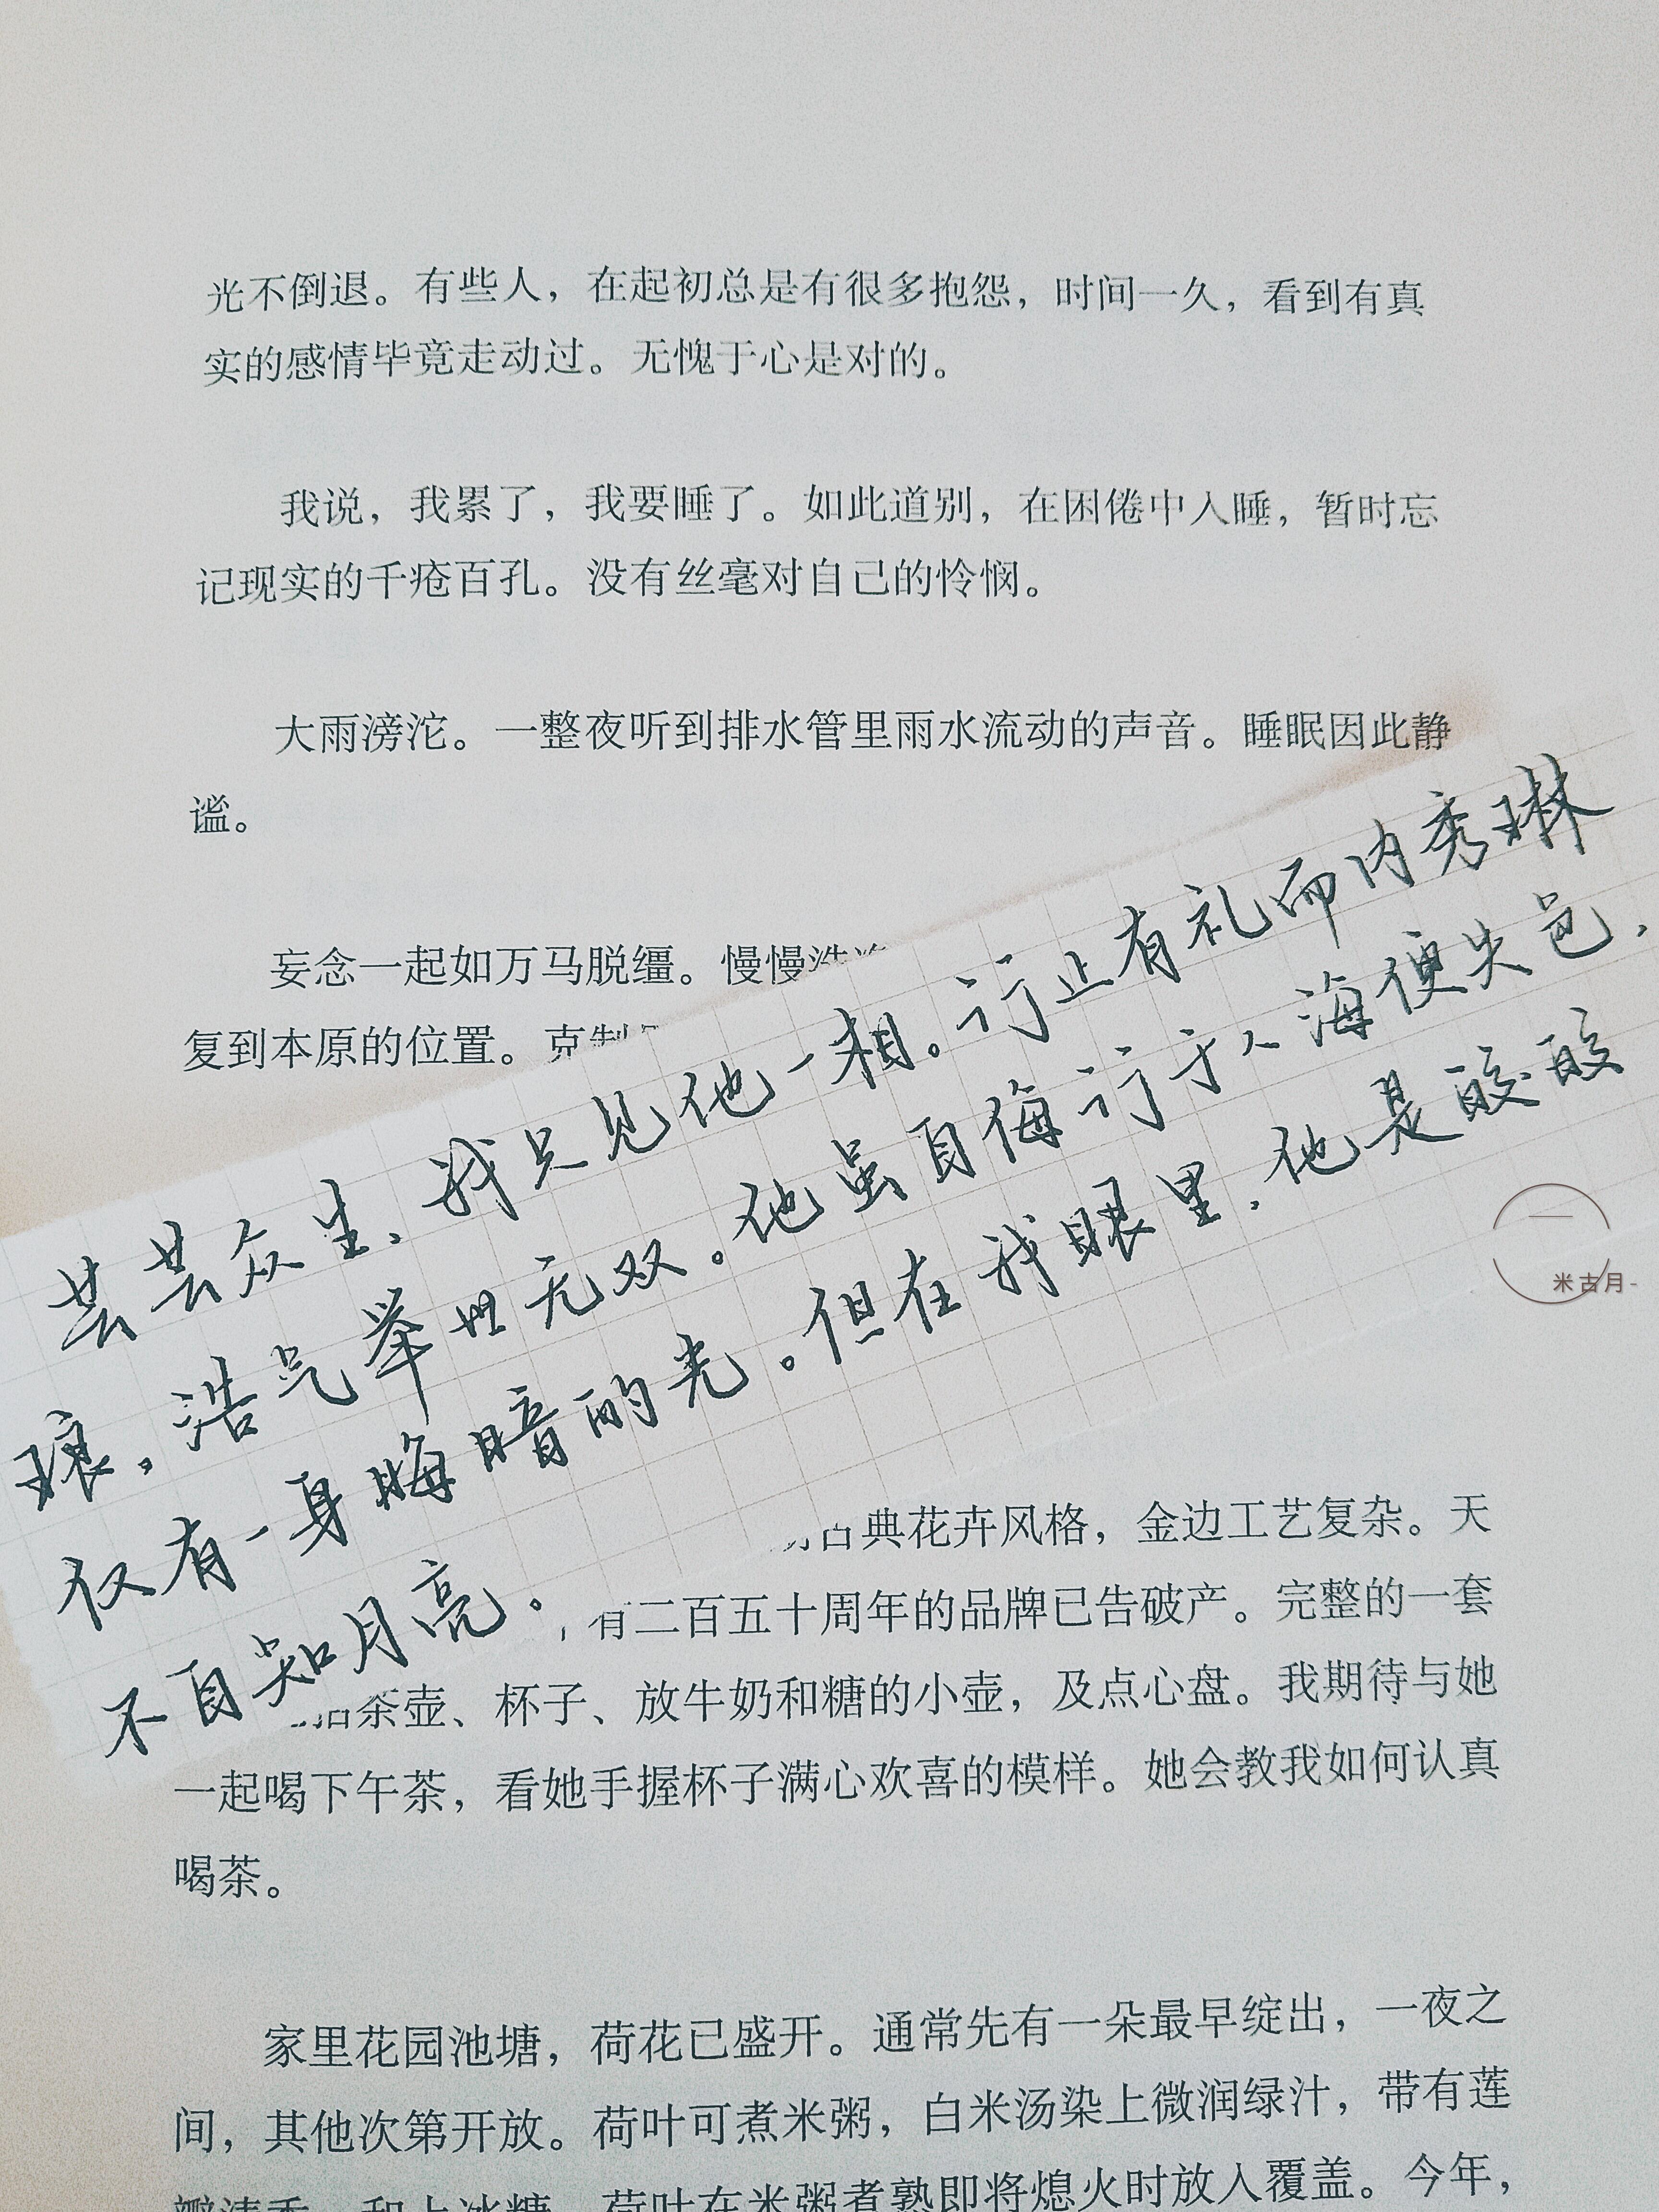 光不倒退。有些人，在起初总是有很多抱怨，时间一久，看到有真
实的感情毕竟走动过。无愧于心是对的。
我说，我累了，我要睡了。如此道别，在困倦中入睡，暂时忘
记现实的千疮百孔。没有丝毫对自己的怜悯。
大雨滂沱。一整夜听到排水管里雨水流动的声音。睡眠因此静
谧。
妄念一起如万马脱缰。慢慢
复到本原的位置。克制
芸芸众生，我只见他一相。行止有礼而内秀琳
琅，浩气举世无双。他虽自侮行于人海便失色，
仅有一身晦暗的光。但在我眼里，他是皎皎
不自知月亮。
古典花卉风格，金边工艺复杂。天
有二百五十周年的品牌已告破产。完整的一套
茶壶、杯子、放牛奶和糖的小壶，及点心盘。我期待与她
一起喝下午茶，看她手握杯子满心欢喜的模样。她会教我如何认真
喝茶。
家里花园池塘，荷花已盛开。通常先有一朵最早绽出，一夜之
间，其他次第开放。荷叶可煮米粥，白米汤染上微润绿汁，带有莲
荷叶在米粥煮熟即将熄火时放入覆盖。今年，
一
米古月-